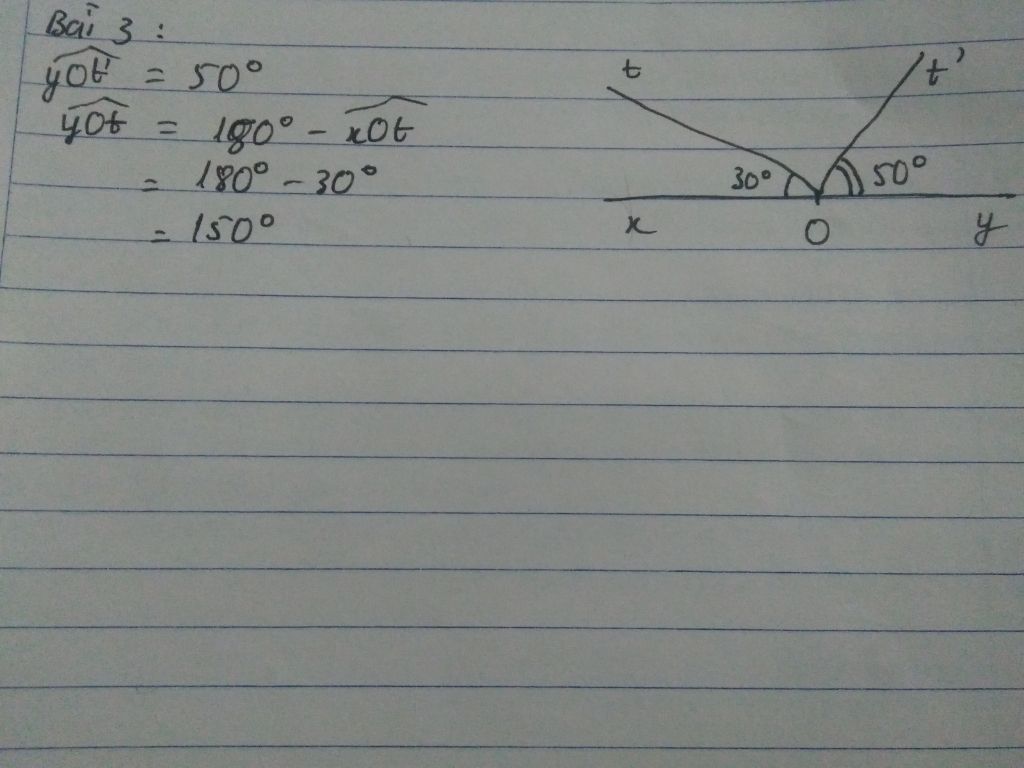 Bài 3 :
yOt' = 50°
yOt = 180° - xOt
= 180° - 30°
= 150°
t
t'
30°
50°
x
O
y